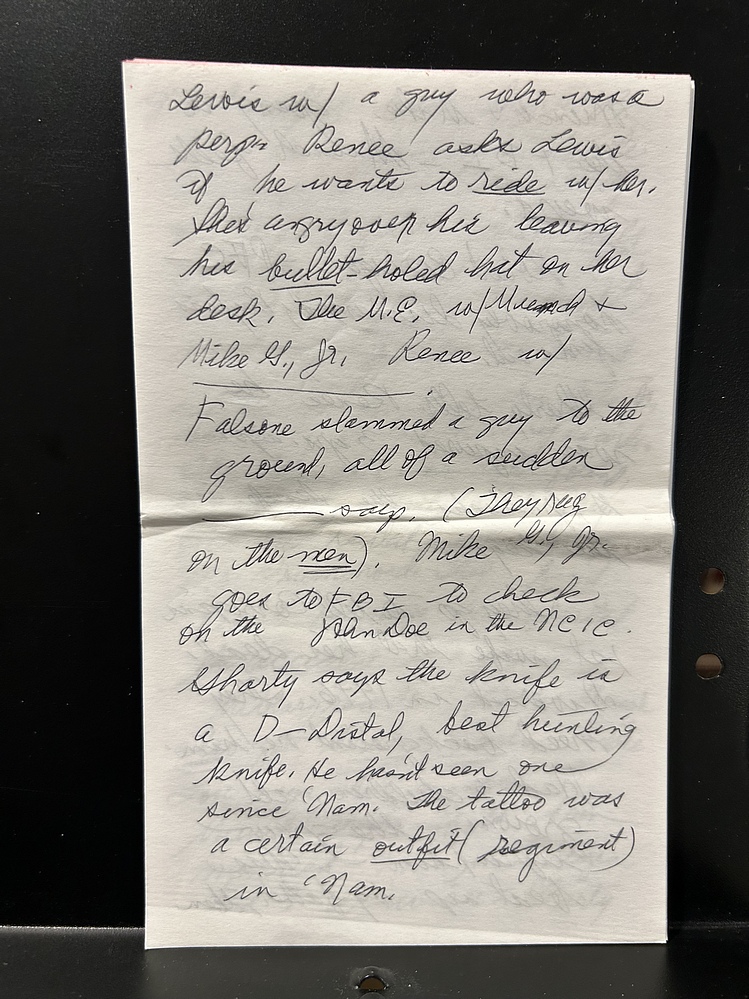 Lewis w/ a guy who was a
perp. Renee asks Lewis
if he wants to ride w/ her.
She's angry over his leaving
his bullet-holed hat on her
desk. The M.E. w/ &
Mike G., Jr. Renee w/
Falsone slammed a guy to the
ground, all of a sudden
says. (They rug
on the men). Mike G., Jr.
goes to FBI to check
on the John Doe in the NCIC.
Gharty says the knife is
a D-Distal, best hunting
knife. He hasn't seen one
since 'Nam. The tattoo was
a certain outfit (regiment)
in 'Nam.